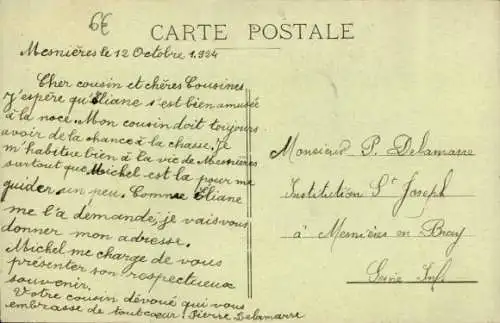 6€
CARTE POSTALE
Mesnières le 12 Octobre 1.934
Cher cousin et chères Cousines
J'espère qu'Eliane s'est bien amusée
à la noce. Mon cousin doit toujours
avoir de la chance à la chasse. Je
m'habitue bien à la vie de Mesnières
surtout que Michel est là pour me
guider un peu. Comme Eliane
me l'a demandé, je vais vous
donner mon adresse.
Michel me charge de vous
présenter son respectueux
souvenir.
Votre cousin dévoué qui vous
embrasse de tout coeur. Pierre Delamarre
Monsieur P. Delamarre
Institution St Joseph
à Mesnières en Bray
Seine Inf.